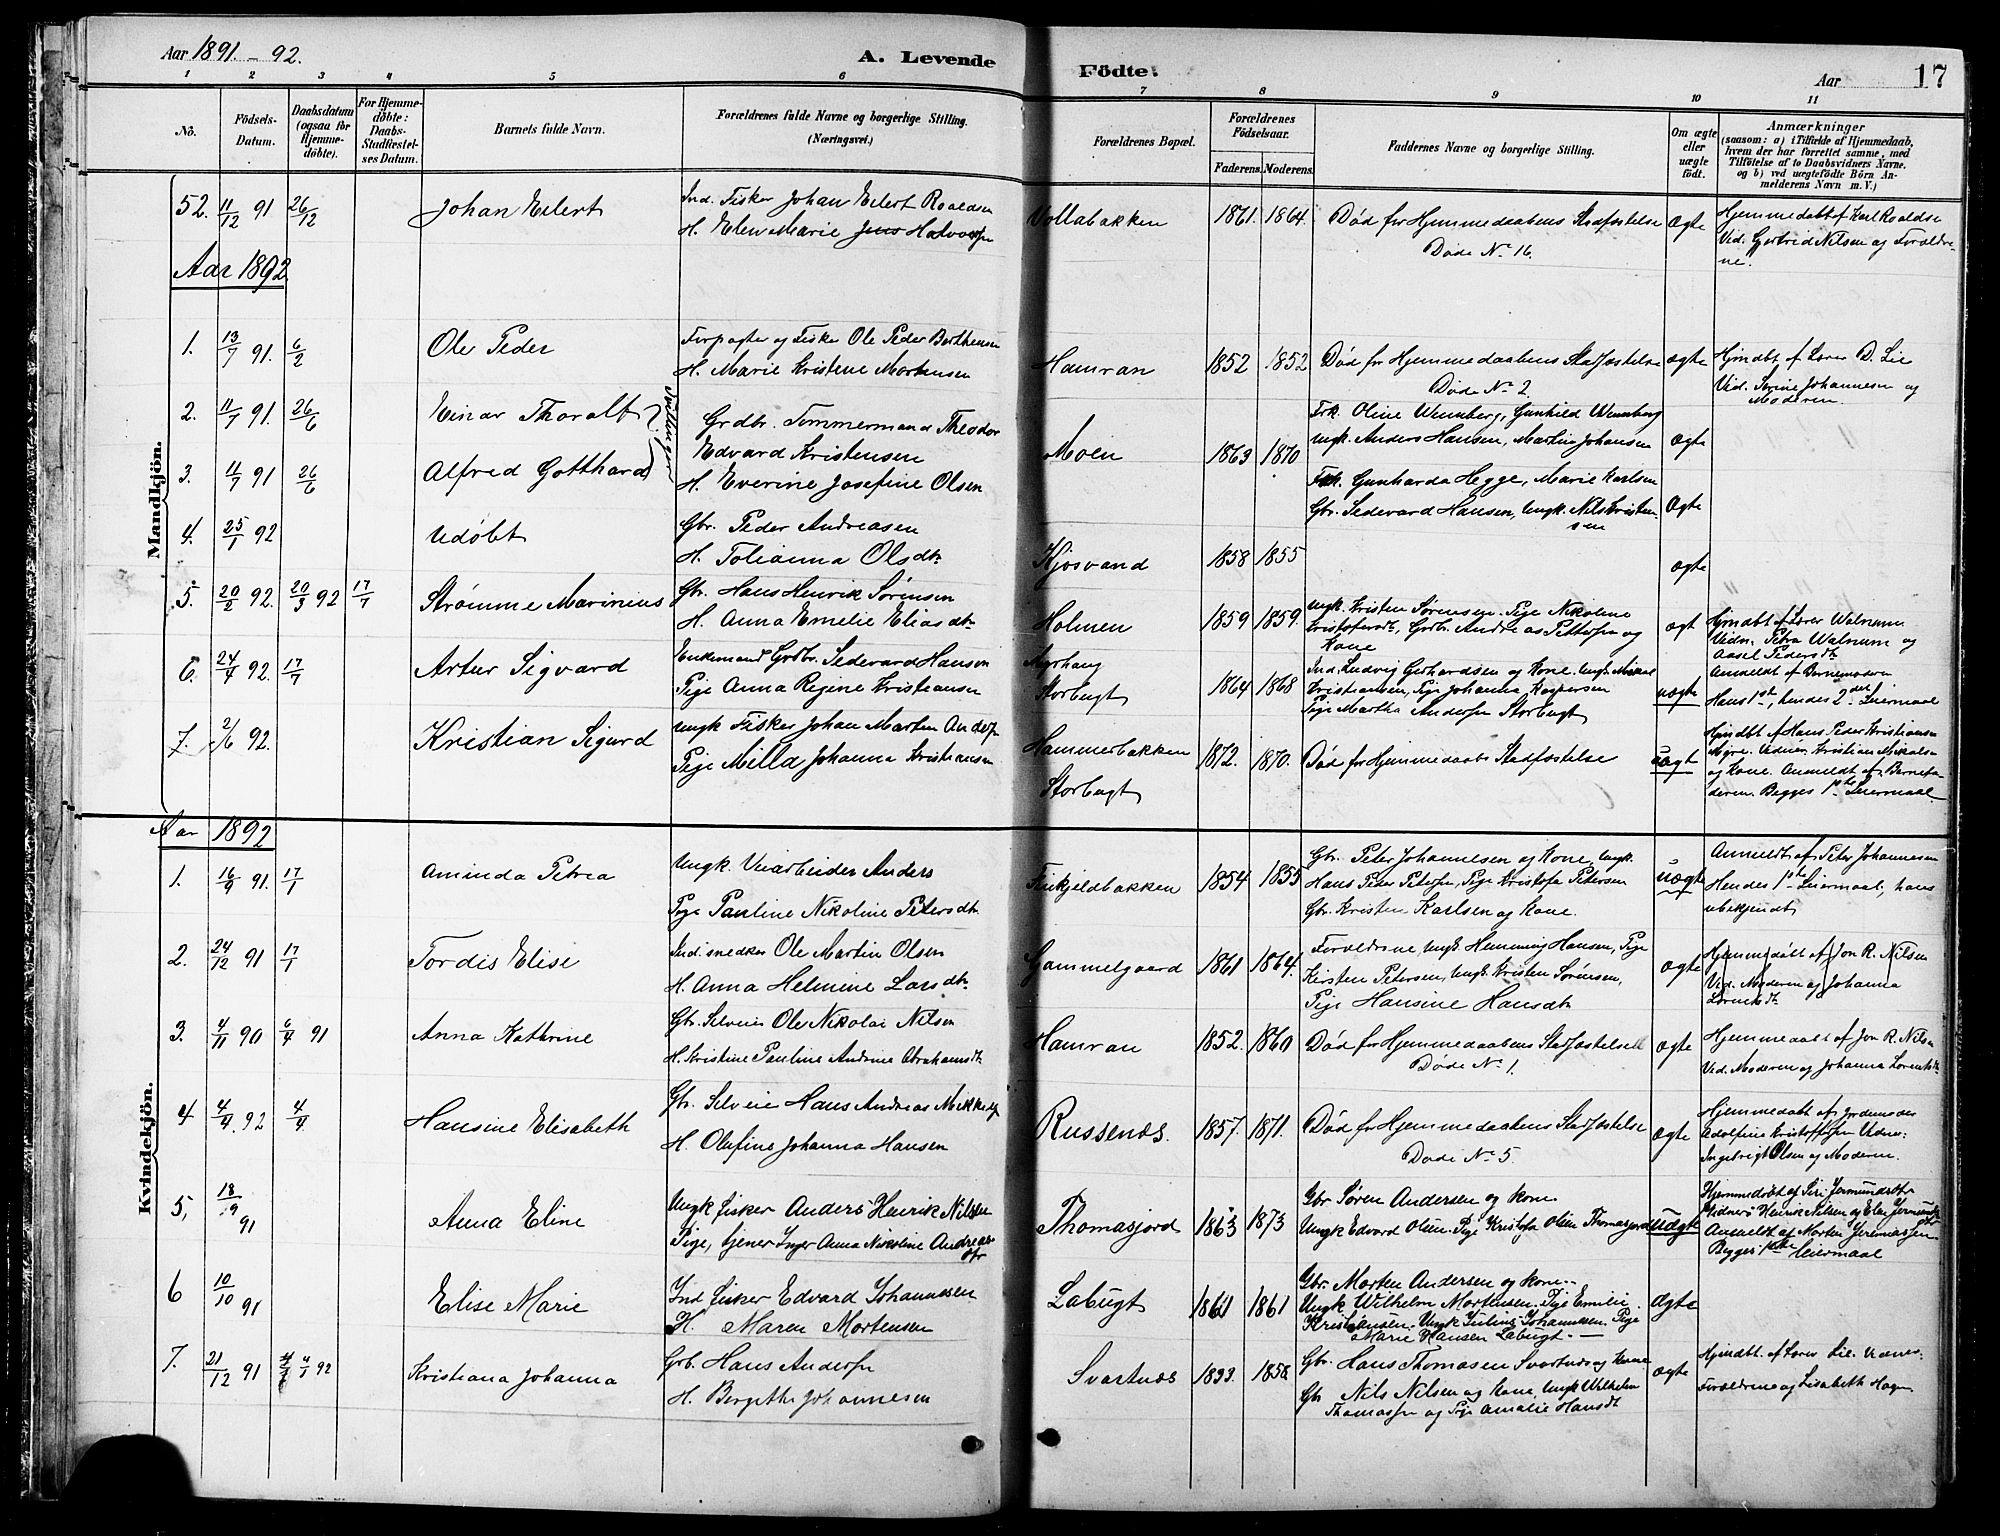 Aar 1891. - 92.
A. Levende
Födte.
Aar
17
1
2
3
4
5
6
7
8
9
10
11
No.
Födsels-
Datum.
Daabsdatum
(ogsaa for
Hjemme-
döbte).
For Hjemme-
döbte:
Daabs-
Stadfæstel-
ses Datum.
Barnets fulde Navn.
Forældrenes fulde Navne og borgerlige Stilling.
(Næringsvei.)
Forældrenes Bopæl.
Forældrenes
Födselsaar.
Faderens.
Moderens.
Faddernes Navne og borgerlige Stilling.
Om ægte
eller
uægte
födt.
Anmærkninger
(saasom: a) i Tilfælde af Hjemmedaab,
hvem der har forrettet samme, med
Tilföielse af to Daabsvidners Navne,
og b) ved uægtefödte Börn An-
melderens Navn m. V.)
Mandkjön.
52. 11/12 91 26/12 Johan Eilert
Ind. Fisker Johan Eilert Roaldsen
H. Elen Marie Halvorsen
Vollabakken 1861. 1864.
Død før Hjemmedaabens Stadfæstelse
Døde No 16.
ægte
Hjemmedøbt af Karl Roaldse
Vid. Gjertrid Nilsen og Forældre-
ne.
Aar 1892
1. 13/7 91. 6/2 Ole Peder
Forpagter og Fisker Ole Peder Berthensen
H. Marie Kristine Mortensen
Hamran 1852 1852
Død før Hjemmedaabens Stadfæstelse
Døde No 2.
ægte
Hjmdbt af Lærer D. Lie
Vid. Serine Johannesen og
Moderen.
2. 11/7 91. 26/6 Einar Thoralf
3. 11/7 91 26/6 Alfred Gotthard
Tvillinger
Grdbr. Tømmermand Theodor
Edvard Kristensen
H. Everine Josefine Olsen
Moen 1863 1870
Frk. Oline Wennberg, Gunhild Wennberg
ungk. Anders Hansen, Martin Johansen
ægte
Frk. Gunharda Hegge, Marie Karlsen
Gbr. Sedevard Hansen, Ungk. Nils Kristen-
sen
Ægte
4. 25/1 92 Udøbt
Gbr. Peder Andreasen
H. Tolianna Olsdtr
Kjosvand 1858 1855
ægte
5. 20/2 92. 20/3 92 17/7 Strømme Marinius
Gbr. Hans Henrik Sørensen
H. Anna Emelie Eliasdtr
Holmen 1859 1859.
ungk. Kristen Sørensen. Pige Nikoline
Kristofersdt, Grdbr. Andreas Pettersen og
Kone
ægt
Hjmdbt af Lærer Walnum
Vidn. Petra Walnum og
Aasel Pedersdt.
6. 24/4 92. 17/7 Artur Sigvard
Enkemand Grdbr. Sedevard Hansen
Pige Anna Regine Kristiansen
Storbugt 1864 1868
Ind. Ludvig Gerhardsen og Kone. Ungk. Mikal
Kristiansen, Pige Johanna Kaspersen
Pige Martha Andersen Storbugt
uægte
Anmeldt af Barnemoderen
Hans 1st, hendes 2det Leiermaal
7. 2/6 92. Kristian Sigurd
Ungk Fisker Johan Marten Andersen
Pige Milla Johanna Kristiansen
Hammerbakken
Storbugt
1872. 1870.
Død før Hjemmedaabs Stadfæstelse
uægt
Hjmdbt af Hans Peder Kristiansen
Myre. Vidner Kristian Mikalsen
og Kone. Anmeldt af Barnefa-
deren. Begges 1ste Leiermaal
Aar 1892
Kvindekjön.
1. 16/9 91. 17/1 Aminda Petrea
Ungk. Veiarbeider Anders
Pige Pauline Nikoline Petersdtr
Finkjeldbakken 1854 1855
Gbr. Peter Johannesen og Kone, Ungk.
Hans Peter Petersen, Pige Kristofa Petersen
Gbr. Kristen Karlsen og Kone.
uægte
Anmeldt af Peter Johannesen
Hendes 1ste Leiermaal, hans
ubekjendt
2. 24/12 91 17/1 Tordis Elise
Ind. snedker Ole Martin Olsen
H. Anna Helmine Larsdtr
Gammelgaard 1861 1864.
Forældrene, Ungk. Hemming Hansen, Pige
Kirsten Petersen, Ungk. Kristen Sørensen,
Pige Hansine Hansdtr
ægte
Hjemmedøbt af Jon R. Nilsen
Vid. Moderen og Johanna
Lorentsdt
3. 4/11 90 6/4 91 Anna Kathrine
Gbr. Selveier Ole Nikolai Nilsen
H. Kristine Pauline Andrine Abrahamsdt
Hamran 1852. 1860
Død før Hjemmedaabens Stadfæstelse
Døde No 1.
ægte
Hjemmedøbt af Jon R. Nilsen
Vid. Moderen og Johanna Lorentsdt
4 4/4 92 4/4 Hansine Elisabeth
Gbr. Selveie Hans Andreas Mikkelsen
H. Olefine Johanna Hansen
Russenæs. 1857. 1871.
Død før Hjemmedaabens Stadfæstelse
Døde No 5.
ægte
Hjemmedøbt af Jordemoder
Adolfine Kristoffersen Vidner:
Ingebrigt Olsen og Moderen.
5, 18/9 91 Anna Eline
Ungk fisker Anders Henrik Nilsen
Pige, tjener Inger Anna Nikoline Andreas-
dtr
Thomasjord 1863 1873
Gbr Søren Andersen og kone
Ungk Edvard Olsen. Pige Kristofa Olsen Thomasjord
uægte
Hjemmedøbt af Siri Jermundsdtr
Vidner: Henrik Nilsen og Elen Jermunds
Anmeldt af Morten Jeremiassen
Begges 1ste Leiermaal
6 10/10 91 Elise Marie
Ind fisker Edvard Johannesen
H. Maren Mortensen
Labugt 1861 1861
Gbr. Morten Andersen og kone.
Ungk Wilhelm Mortensen. Pige Emilie
Kristiansen. Ungk Julius Johannesen. Pige
Marie Hansen Labugt.
Ægte
7. 21/12 91 4/7 92 Kristiana Johanna
Grb. Hans Andersen
H. Bergithe Johannesen
Svartnæs 1833. 1858
Gbr. Hans Thomasen Svartnæs og Kone
Gbr Nils Nilsen og Kone, Ungk Wilhelm
Thomassen og Pige Amalie Hansdt
ægte
Hjmdbt. af Lærer Lie. Vidnes:
Forældrene og Lisabeth Hagen